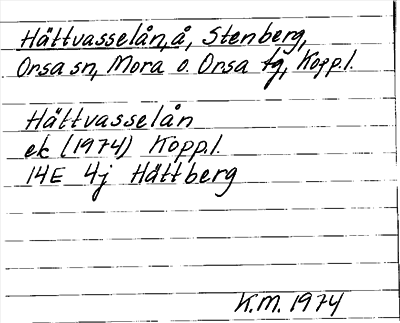 Hättvasselån, å, Stenberg,
Orsa sn, Mora o. Orsa tg, Kopp.l.
Hättvasselån
ek (1974) Kopp.l.
14E 4j Hättberg
K.M. 1974